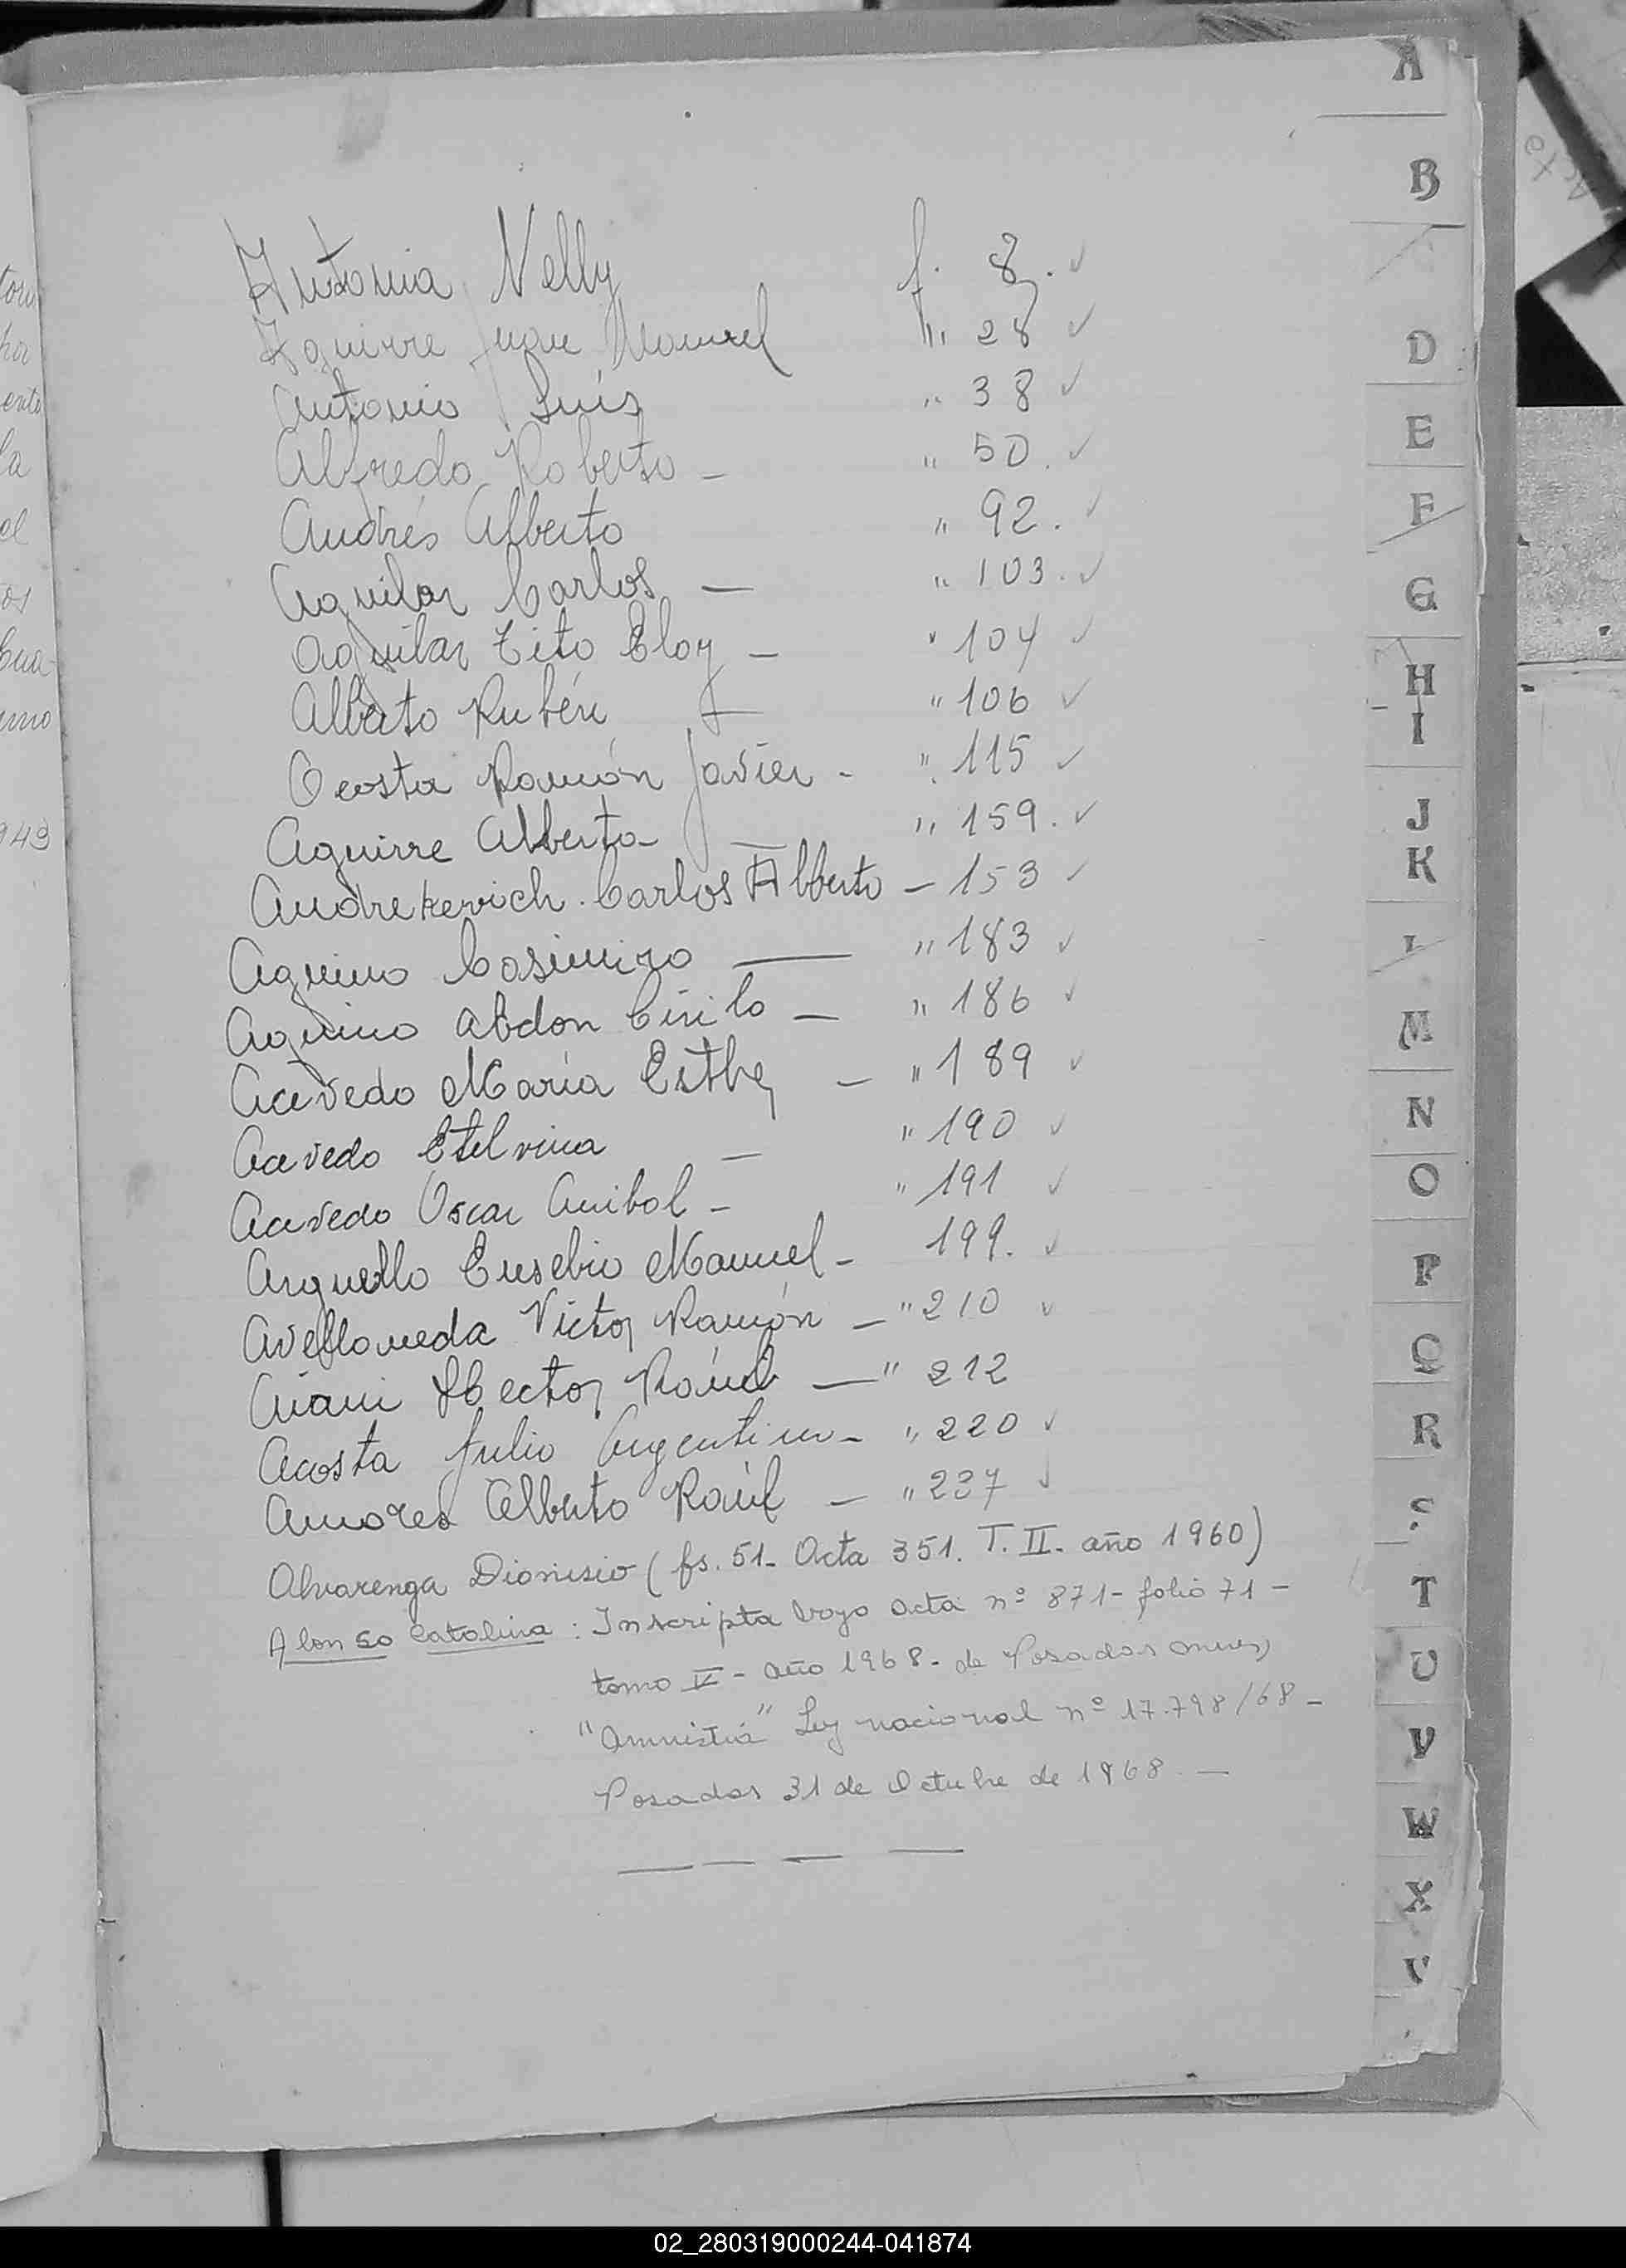 Antonia Nelly f. 8. ✓
Aguirre Juan Manuel " 28 ✓
Antonio Luis " 38 ✓
Alfredo Roberto - " 50. ✓
Andrés Alberto " 92. ✓
Aguilar Carlos — " 103. ✓
Aguilar Tito Eloy — " 104 ✓
Alberto Rubén — " 106 ✓
Acosta Ramón Javier - " 115 ✓
Aguirre Alberto — " 159. ✓
Andrekevich Carlos Alberto - 153 ✓
Aquino Casimiro — " 183 ✓
Aquino Abdon Cirilo — " 186 ✓
Acevedo María Esther — " 189 ✓
Acevedo Etelvina — " 190 ✓
Acevedo Oscar Anibal - " 191 ✓
Arguello Eusebio Manuel - 199. ✓
Avellaneda Victor Ramón — " 210 ✓
Hector Raúl — " 212
Acosta Julio Argentino - " 220 ✓
Amores Alberto Raúl — " 237 ✓
Alvarenga Dionisio (fs. 51- Acta 351. T. II- año 1960)
Alonso Catalina : Inscripta bajo acta nº 871- folio 71 -
tomo IV - año 1968 - de Posadas Mnes)
"Amnistia" Ley nacional nº 17.798/68 -
Posadas 31 de Octubre de 1968 —
A
B
D
E
F
G
H
I
J
K
L
M
N
O
P
Q
R
S
T
U
V
W
X
02_280319000244-041874